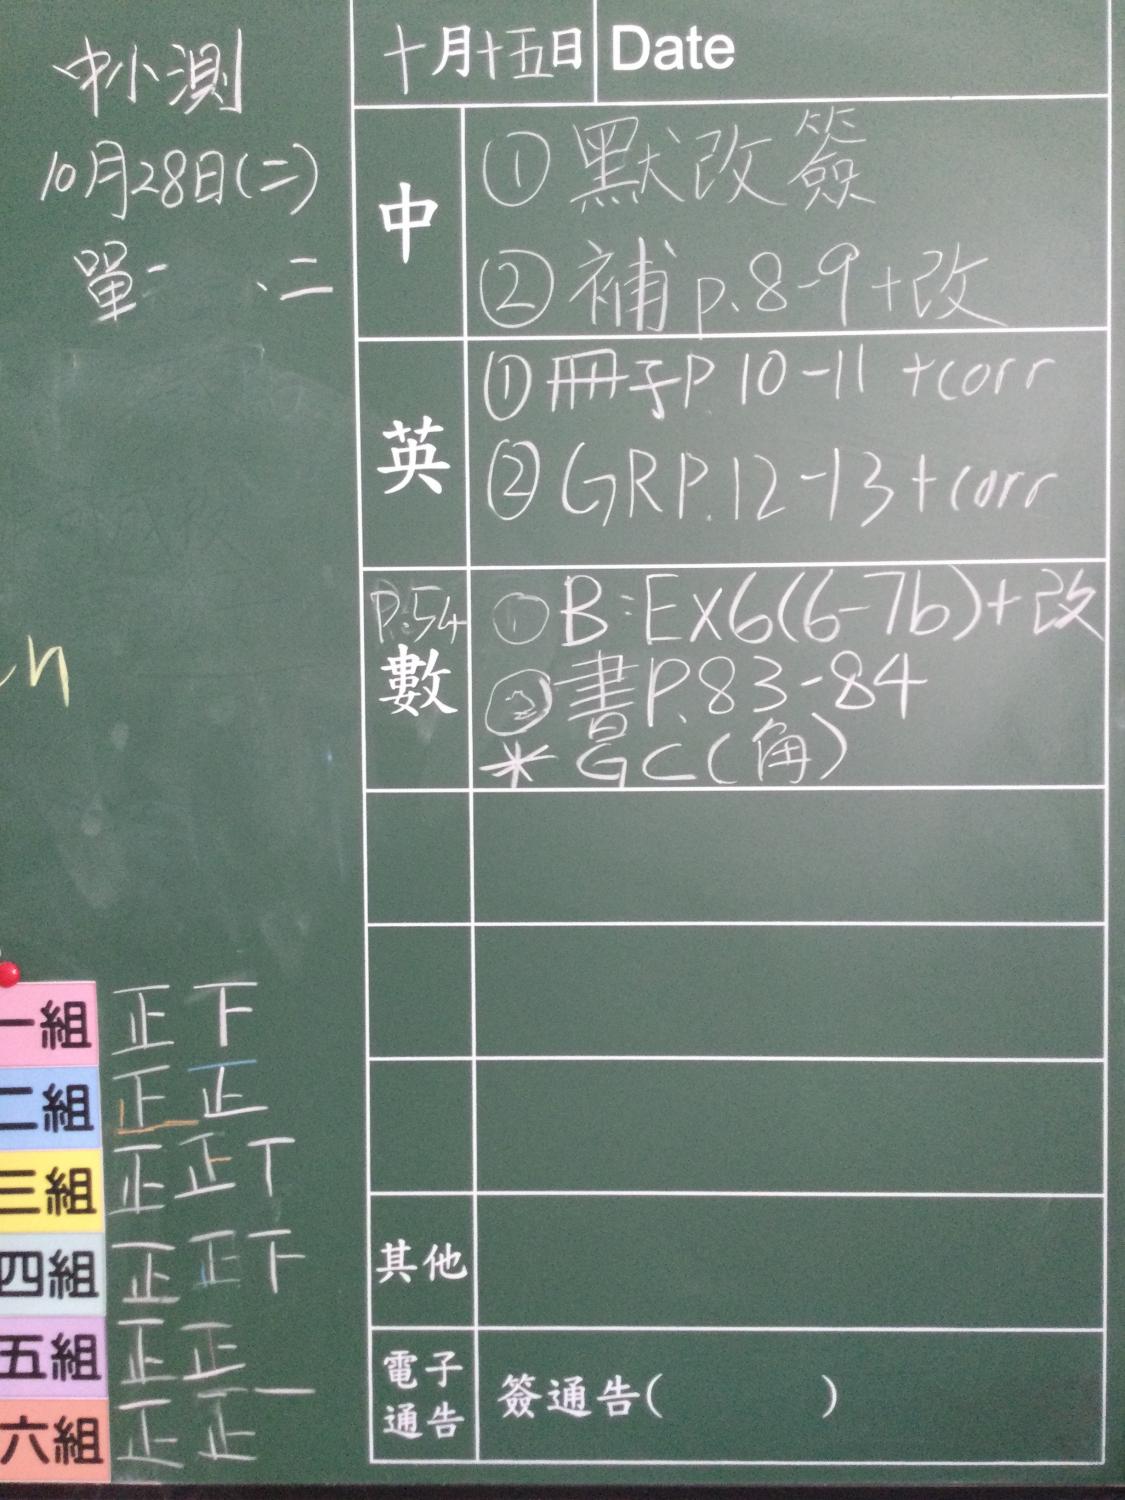 中小測
10月28日(二)
單一、二
十月十五日 Date
中
① 默改簽
② 補 p.8-9 +改
英
① 冊子P.10-11 +corr
② GR P.12-13 +corr
P.54
數
① B:EX6(6-7b)+改
② 書P.83-84
* GC(角)
其他
電子通告
簽通告( )
一組 正 下
二組 正 正
三組 正 正 丅
四組 正 正 下
五組 正 正
六組 正 正 一